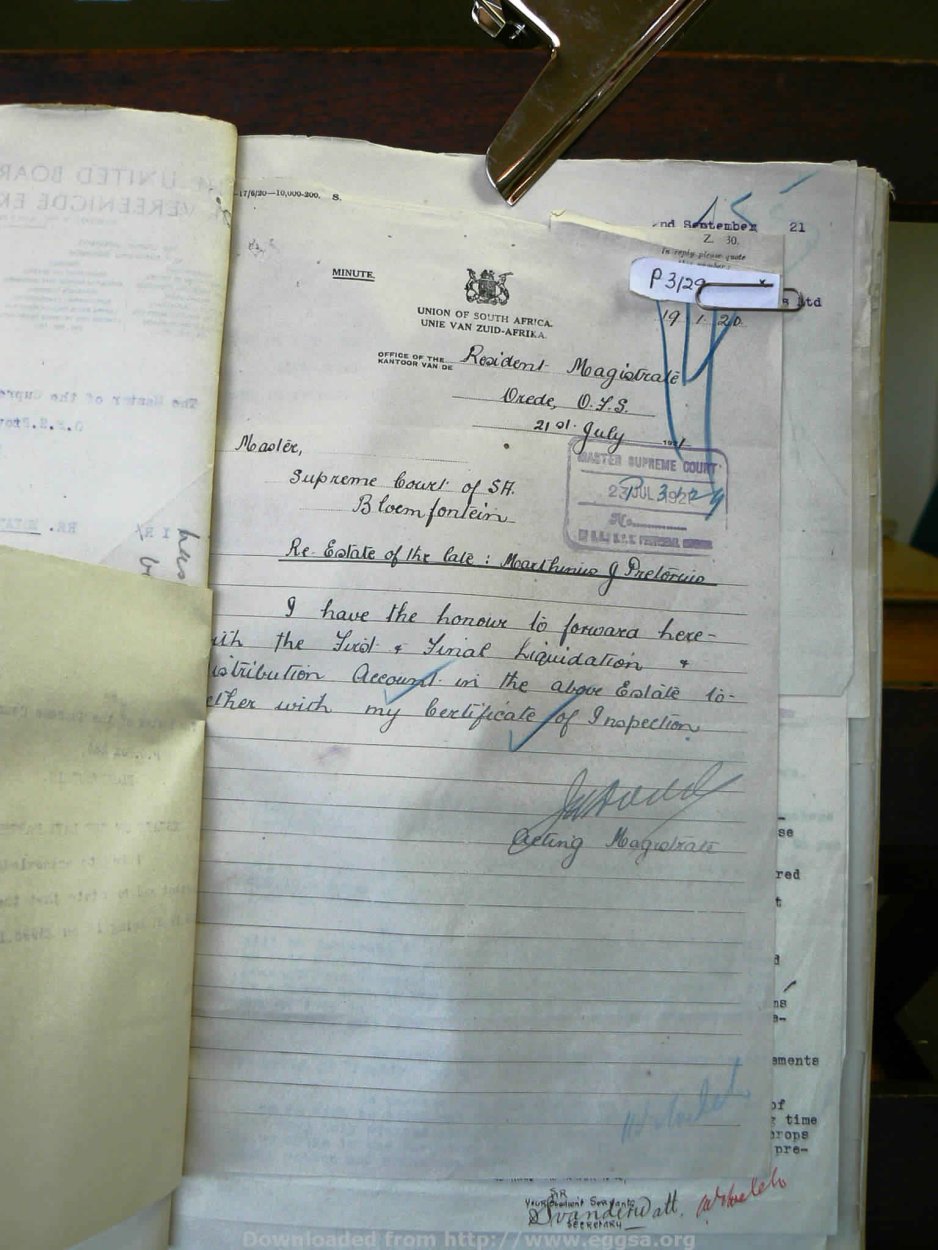 17/6/20—10,000-200. S.
nd September 21
Z. 30.
In reply please quote
this number:
P 3/29
s Ltd
19. 1. 20
MINUTE.
UNION OF SOUTH AFRICA.
UNIE VAN ZUID-AFRIKA.
OFFICE OF THE
KANTOOR VAN DE
Resident Magistrate
Vrede, O.F.S.
21st July 1921
Master,
Supreme Court of SA.
Bloemfontein
MASTER SUPREME COURT
23 JUL 1921
P 3129
No.
Re Estate of the late: Marthinus J Pretorius
I have the honour to forward here-
ith the First & Final Liquidation &
istribution Account in the above Estate to-
ether with my Certificate of Inspection.
Acting Magistrate
UNITED BOAR
VEREENIGDE E
The Master of the Supre
O.F.S. Prov
se
red
t
d
ns
e-
ements
of
g time
crops
pre-
SIR
Your Obedient Servants
Secretary
Downloaded from http://www.eggsa.org